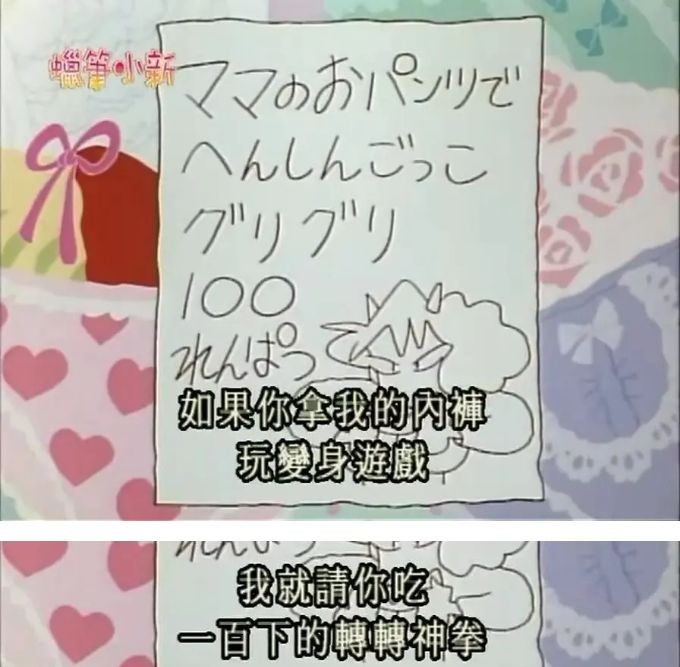 蠟筆小新
ママのおパンツで
へんしんごっこ
グリグリ
100
れんぱつ
如果你拿我的內褲
玩變身遊戲
れんぱつ
我就請你吃
一百下的轉轉神拳